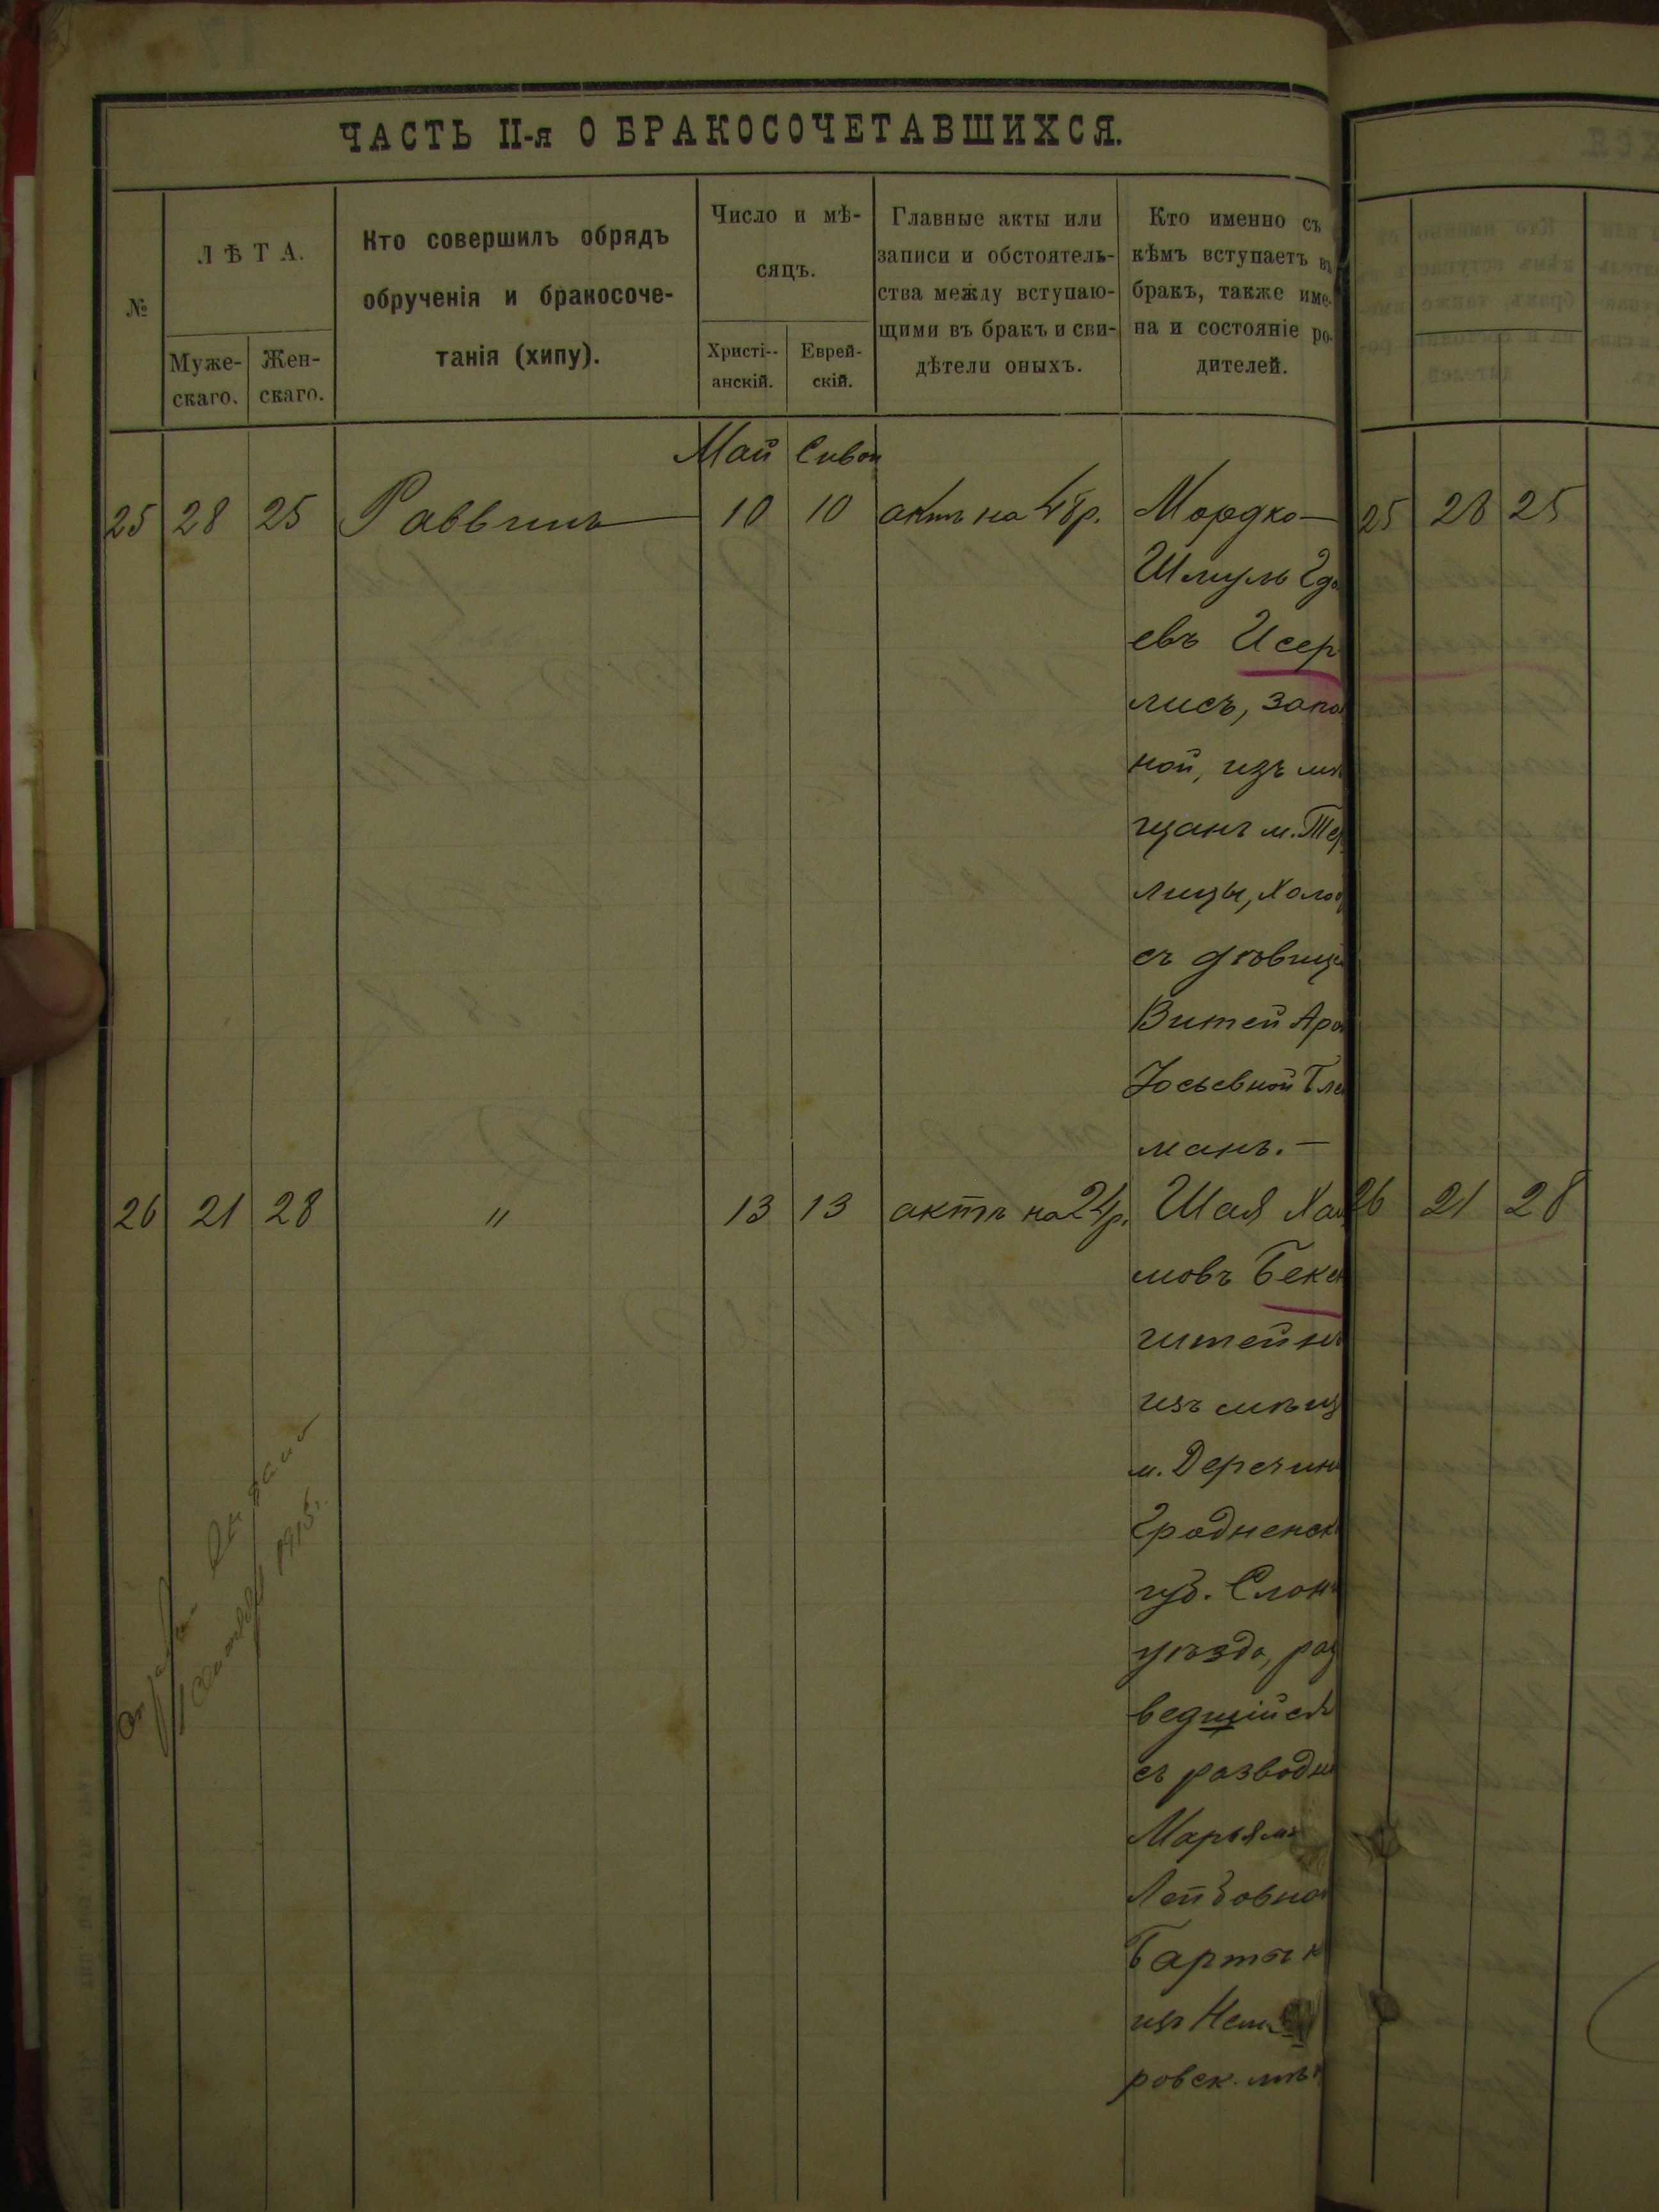 ЧАСТЬ II-я О БРАКОСОЧЕТАВШИХСЯ.
№
ЛѢТА.
Муже-
скаго.
Жен-
скаго.
Кто совершилъ обрядъ
обрученія и бракосоче-
танія (хипу).
Число и мѣ-
сяцъ.
Христі--
анскій.
Еврей-
скій.
Главные акты или
записи и обстоятель-
ства между вступаю-
щими въ бракъ и сви-
дѣтели оныхъ.
Кто именно съ
кѣмъ вступаетъ въ
бракъ, также име-
на и состояніе ро-
дителей.
Май Сиван
25 28 25 Раввинъ 10 10 актъ на 48р. Мордко- 25 28 25
Шмуль
евъ Исер
лисъ, запа
ной, изъ мѣ
щанъ м. Тер
лицы, Холо
съ дѣвице
Витей Аро
Юсьевной
манъ. —
26 21 28 " 13 13 актъ на 24р. Шая Хаи 26 21 28
мовъ Бекен
штейнъ
изъ мѣщ
м. Деречин
Гродненск
губ. Слони
уѣзда, раз
ведшійся
съ разводн
Марьям
Лейбовно
изъ Неми
ровск. мѣ
1915г.